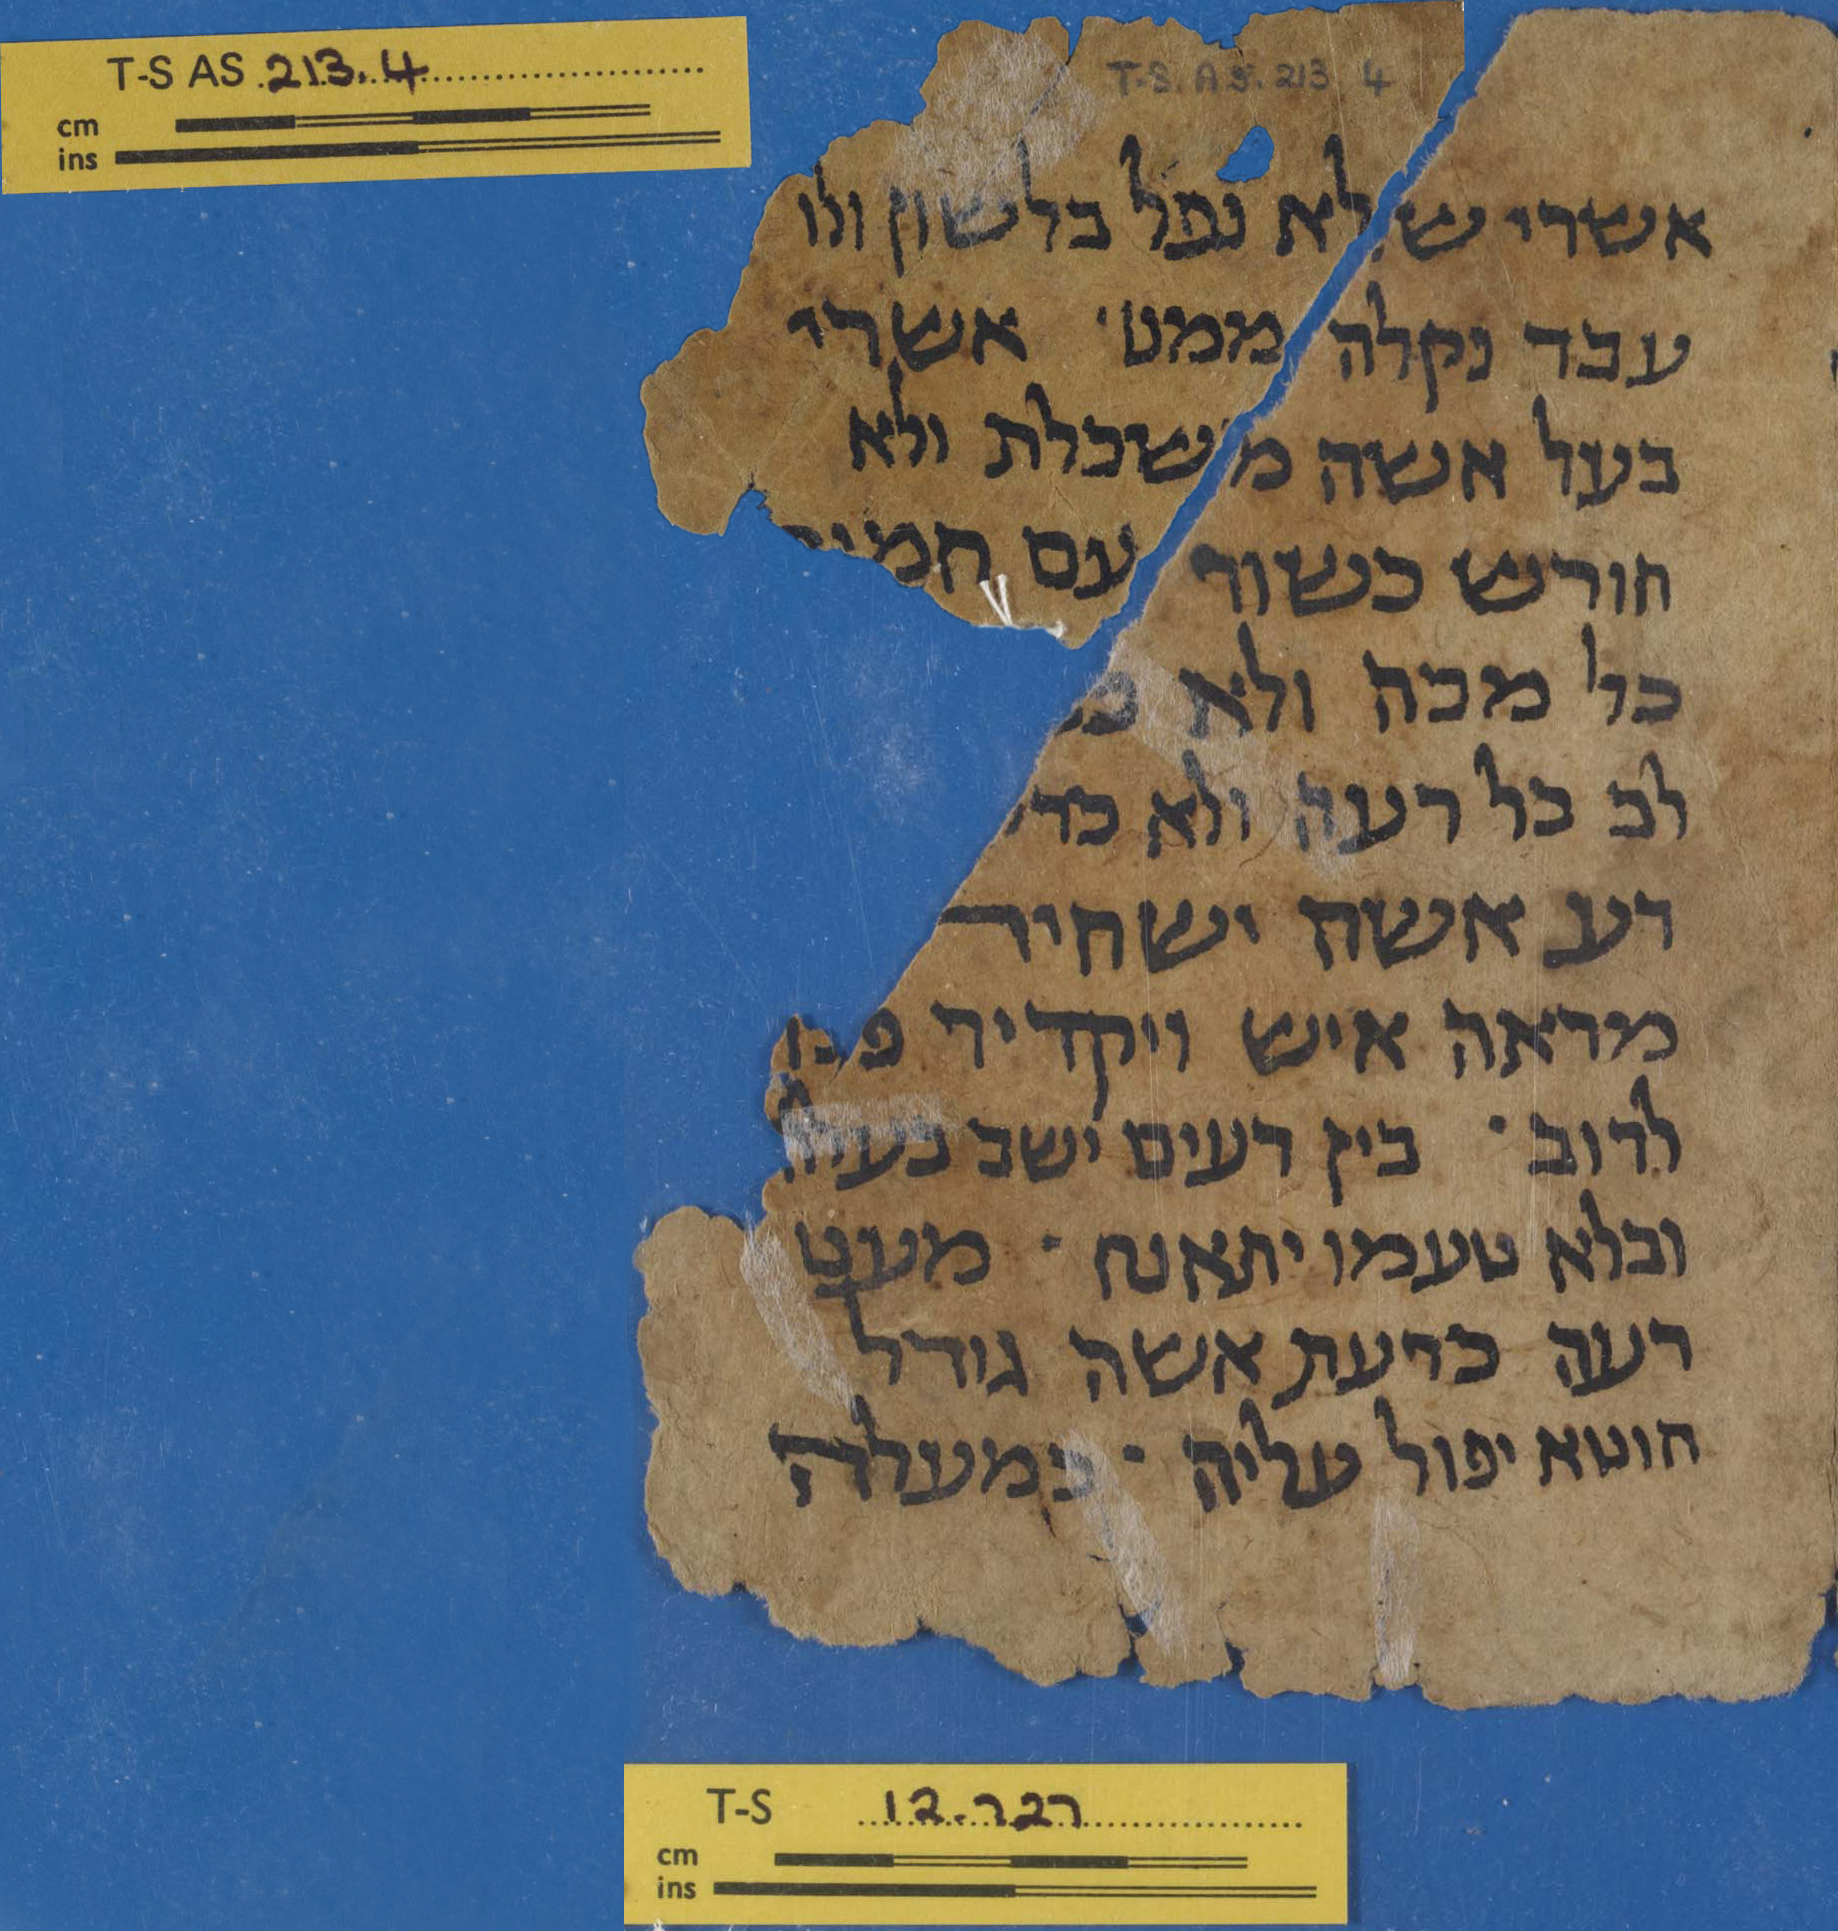 T-S AS 213.4
cm
ins
T-S. A.S. 213 4
אשרי שלא נפל בלשון ולו
עבד נקלה ממט׳ אשרי
בעל אשה משכלת ולא
חורש כשור עם
כל מכה ולא
לב כל רעה ולא
רע אשה ישחיר
מראה איש ויקדיר
לדוב ׳ בין רעים ישב
ובלא טעמו יתאנח ׳ מעט
רעה כרעת אשה גורל
חוטא יפול עליה ׳ כמעלה
T-S 12.727
cm
ins